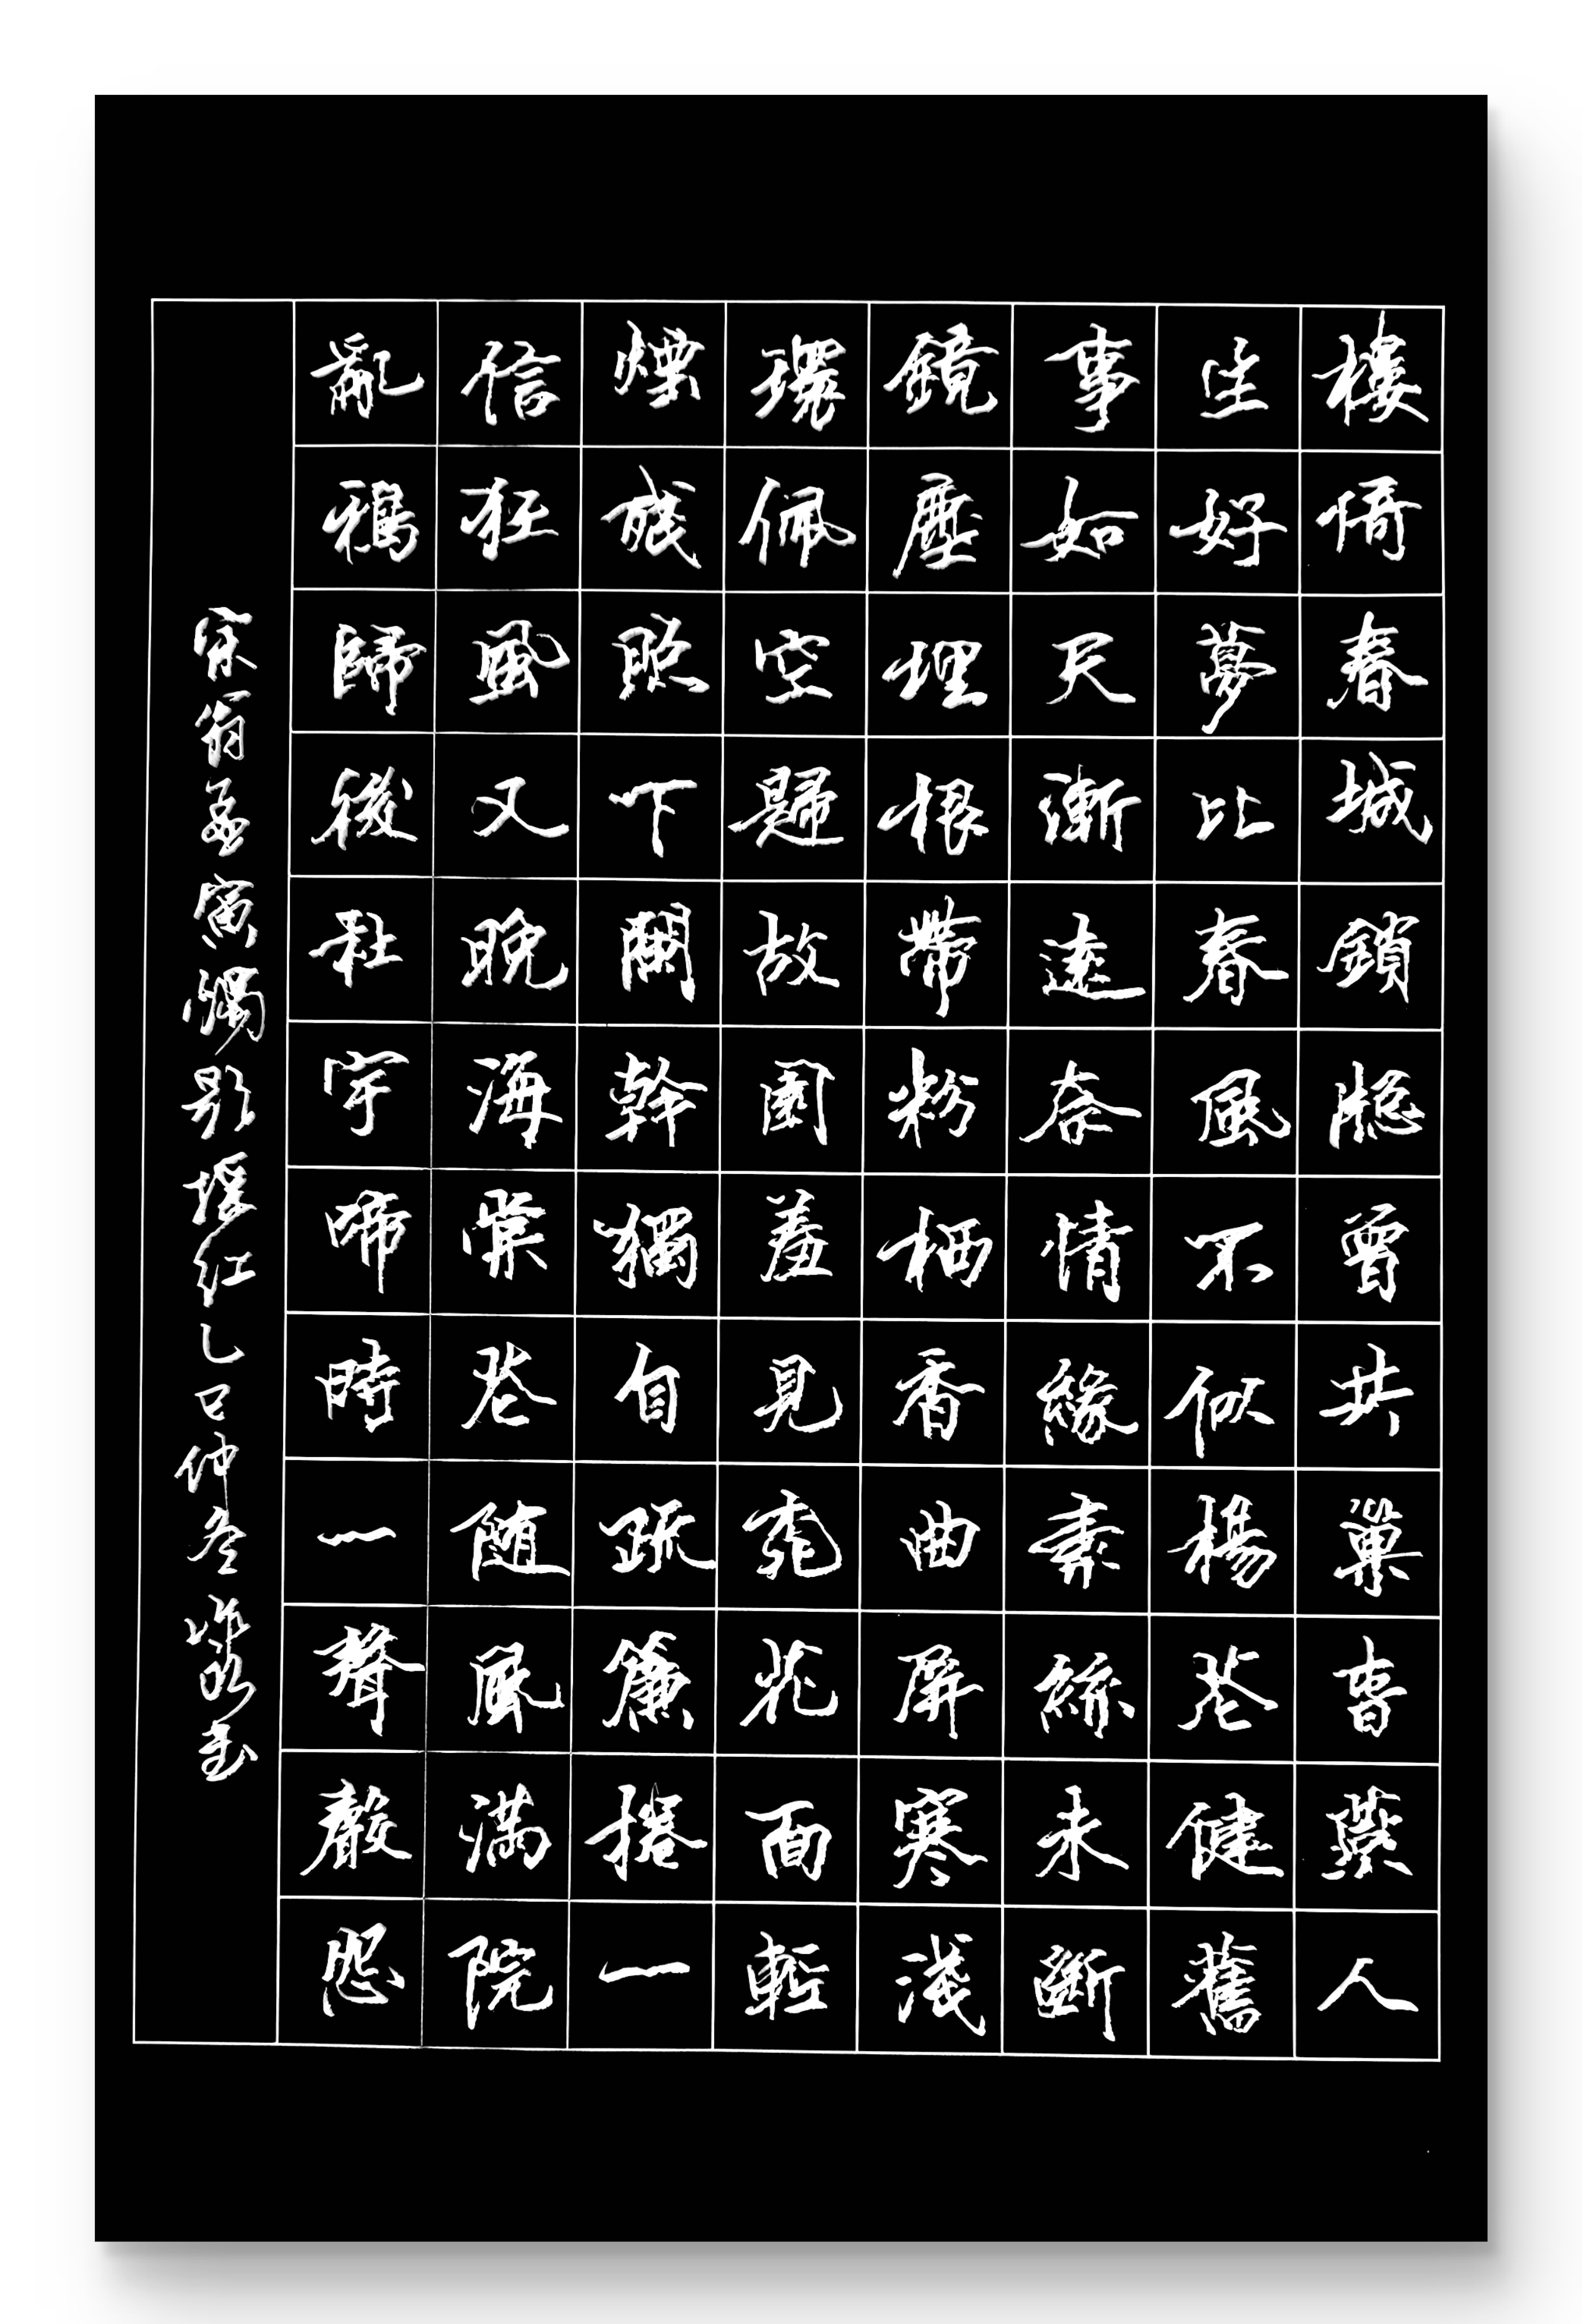 樓倚春城鎖牕曾共巢旾燕人
生好夢比春風不似楊花健舊
事如天漸遠奈情緣素絲未斷
鏡塵埋恨帶粉栖香曲屏寒淺
環佩空歸故園羞見桃花面輕
煙殘照下闌幹獨自疏簾捲一
信狂風又晚海棠花随風滿院
亂鴉歸後杜宇啼時一聲聲怨
宋翁孟寅燭影摇红乙巳仲冬